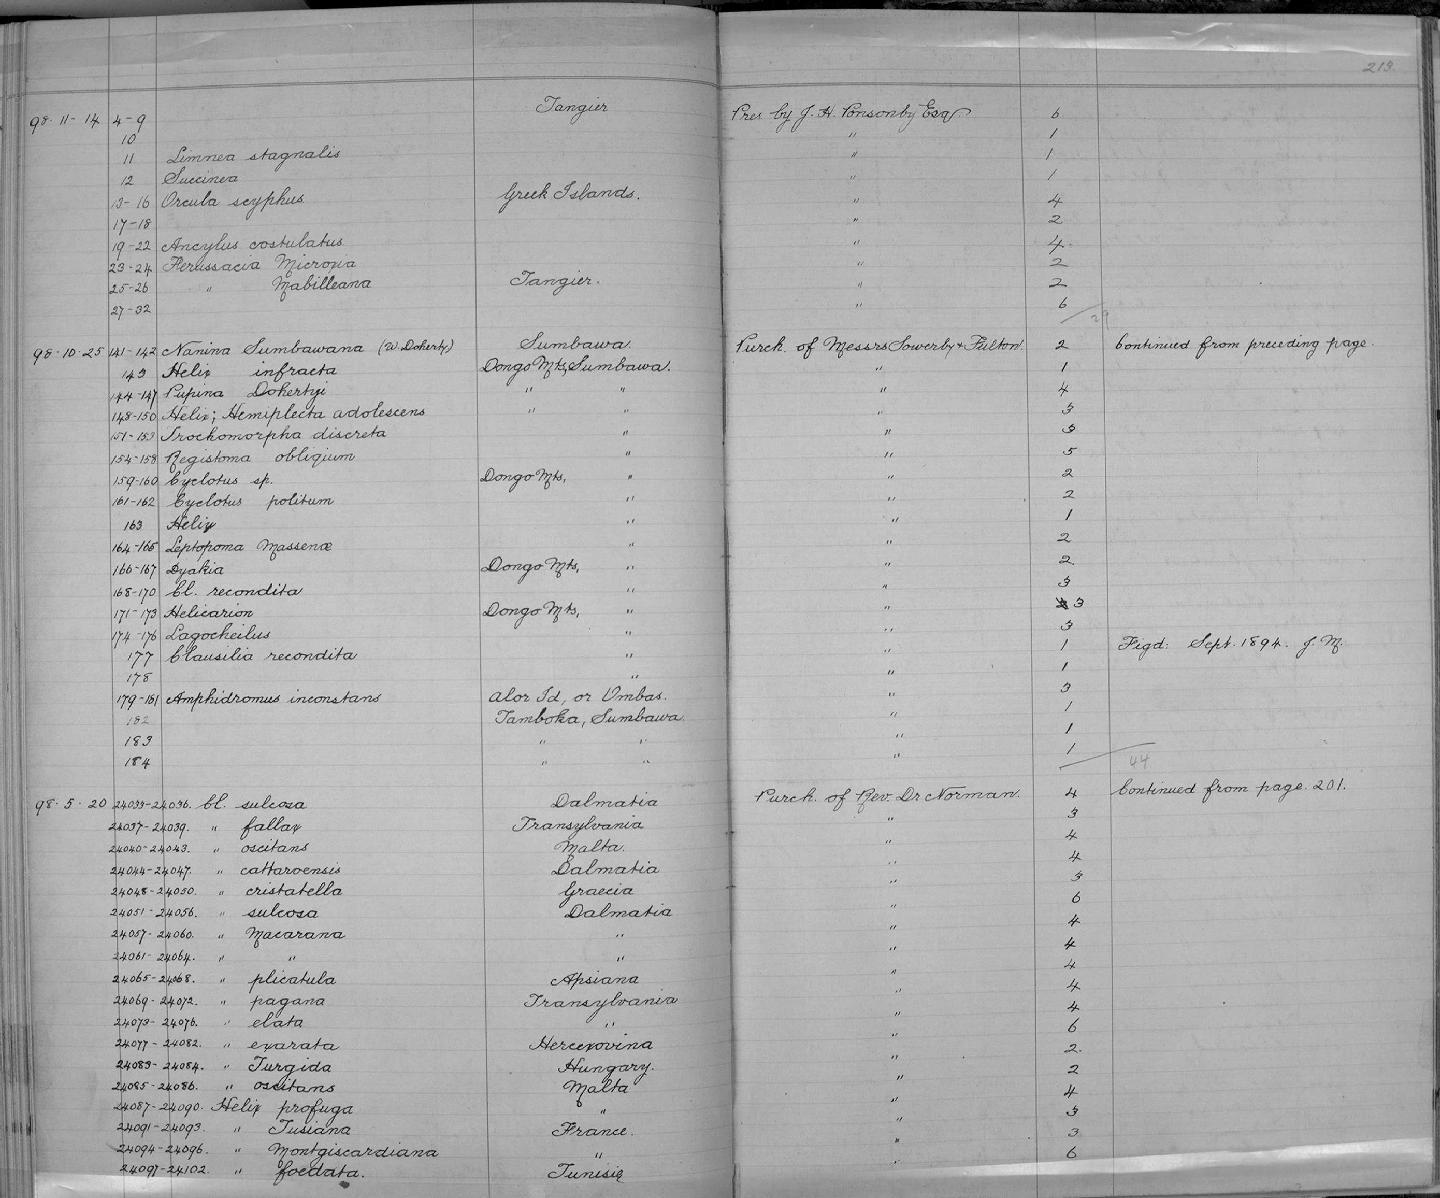 213.
98. 11 - 14 4-9 Tangier Pres by J. H. Ponsonby Esq 6
10 " 1
11 Limnea stagnalis " 1
12 Succinea " 1
13-16 Orcula scyphus Greek Islands. " 4
17-18 " 2
19-22 Ancylus costulatus " 4
23-24 Ferussacia Microxia " 2
25-26 " Mabilleana Tangier. " 2
27-32 " 6
29
98. 10. 25 141-142 Nanina Sumbawana (W. Doherty) Sumbawa. Purch. of Messrs Sowerby & Fulton. 2 Continued from preceding page.
143 Helix infracta Dongo Mts, Sumbawa. " 1
144-147 Pupina Dohertyi " " " 4
148-150 Helix; Hemiplecta adolescens " " " 3
151-153 Trochomorpha discreta " " 3
154-158 Registoma obliqium " " 5
159-160 Cyclotus sp. Dongo Mts, " " 2
161-162 Cyclotus politum " " 2
163 Helix " " 1
164-165 Leptopoma Massenæ " " 2
166-167 Dyakia Dongo Mts, " " 2
168-170 Cl. recondita " " 3
171-173 Helicarion Dongo Mts, " " 3
174-176 Lagocheilus " " 3
177 Clausilia recondita " " 1 Figd: Sept. 1894. J. M.
178 " " 1
179-181 Amphidromus inconstans Alor Id, or Ombas. " 3
182 Tamboka, Sumbawa. " 1
183 " " " 1
184 " " " 1
44
98. 5. 20 24033-24036. Cl. sulcosa Dalmatia Purch. of Rev. Dr Norman. 4 Continued from page. 201.
24037-24039. " fallax Transylvania " 3
24040-24043. " oscitans Malta. " 4
24044-24047. " cattaroensis Dalmatia " 4
24048-24050. " cristatella Graecia " 3
24051-24056. " sulcosa Dalmatia " 6
24057-24060. " Macarana " " 4
24061-24064. " " " " 4
24065-24068. " plicatula Apsiana " 4
24069-24072. " pagana Transylvania " 4
24073-24076. " elata " " 4
24077-24082. " exarata Hercexovina " 6
24083-24084. " Turgida Hungary. " 2
24085-24086. " oscitans Malta " 2
24087-24090. Helix profuga " " 4
24091-24093. " Tusiana France. " 3
24094-24096. " Montgiscardiana " " 3
24097-24102. " foedata. Tunisie " 6